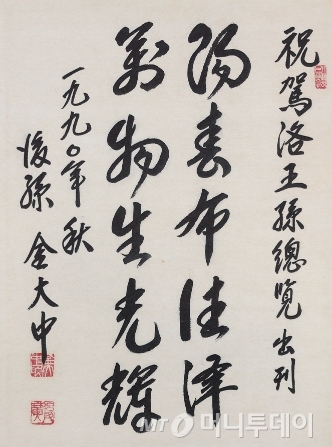 祝駕洛王孫總覽出刊
陽春布德澤
萬物生光輝
一九九〇年 秋
後孫 金大中
머니투데이